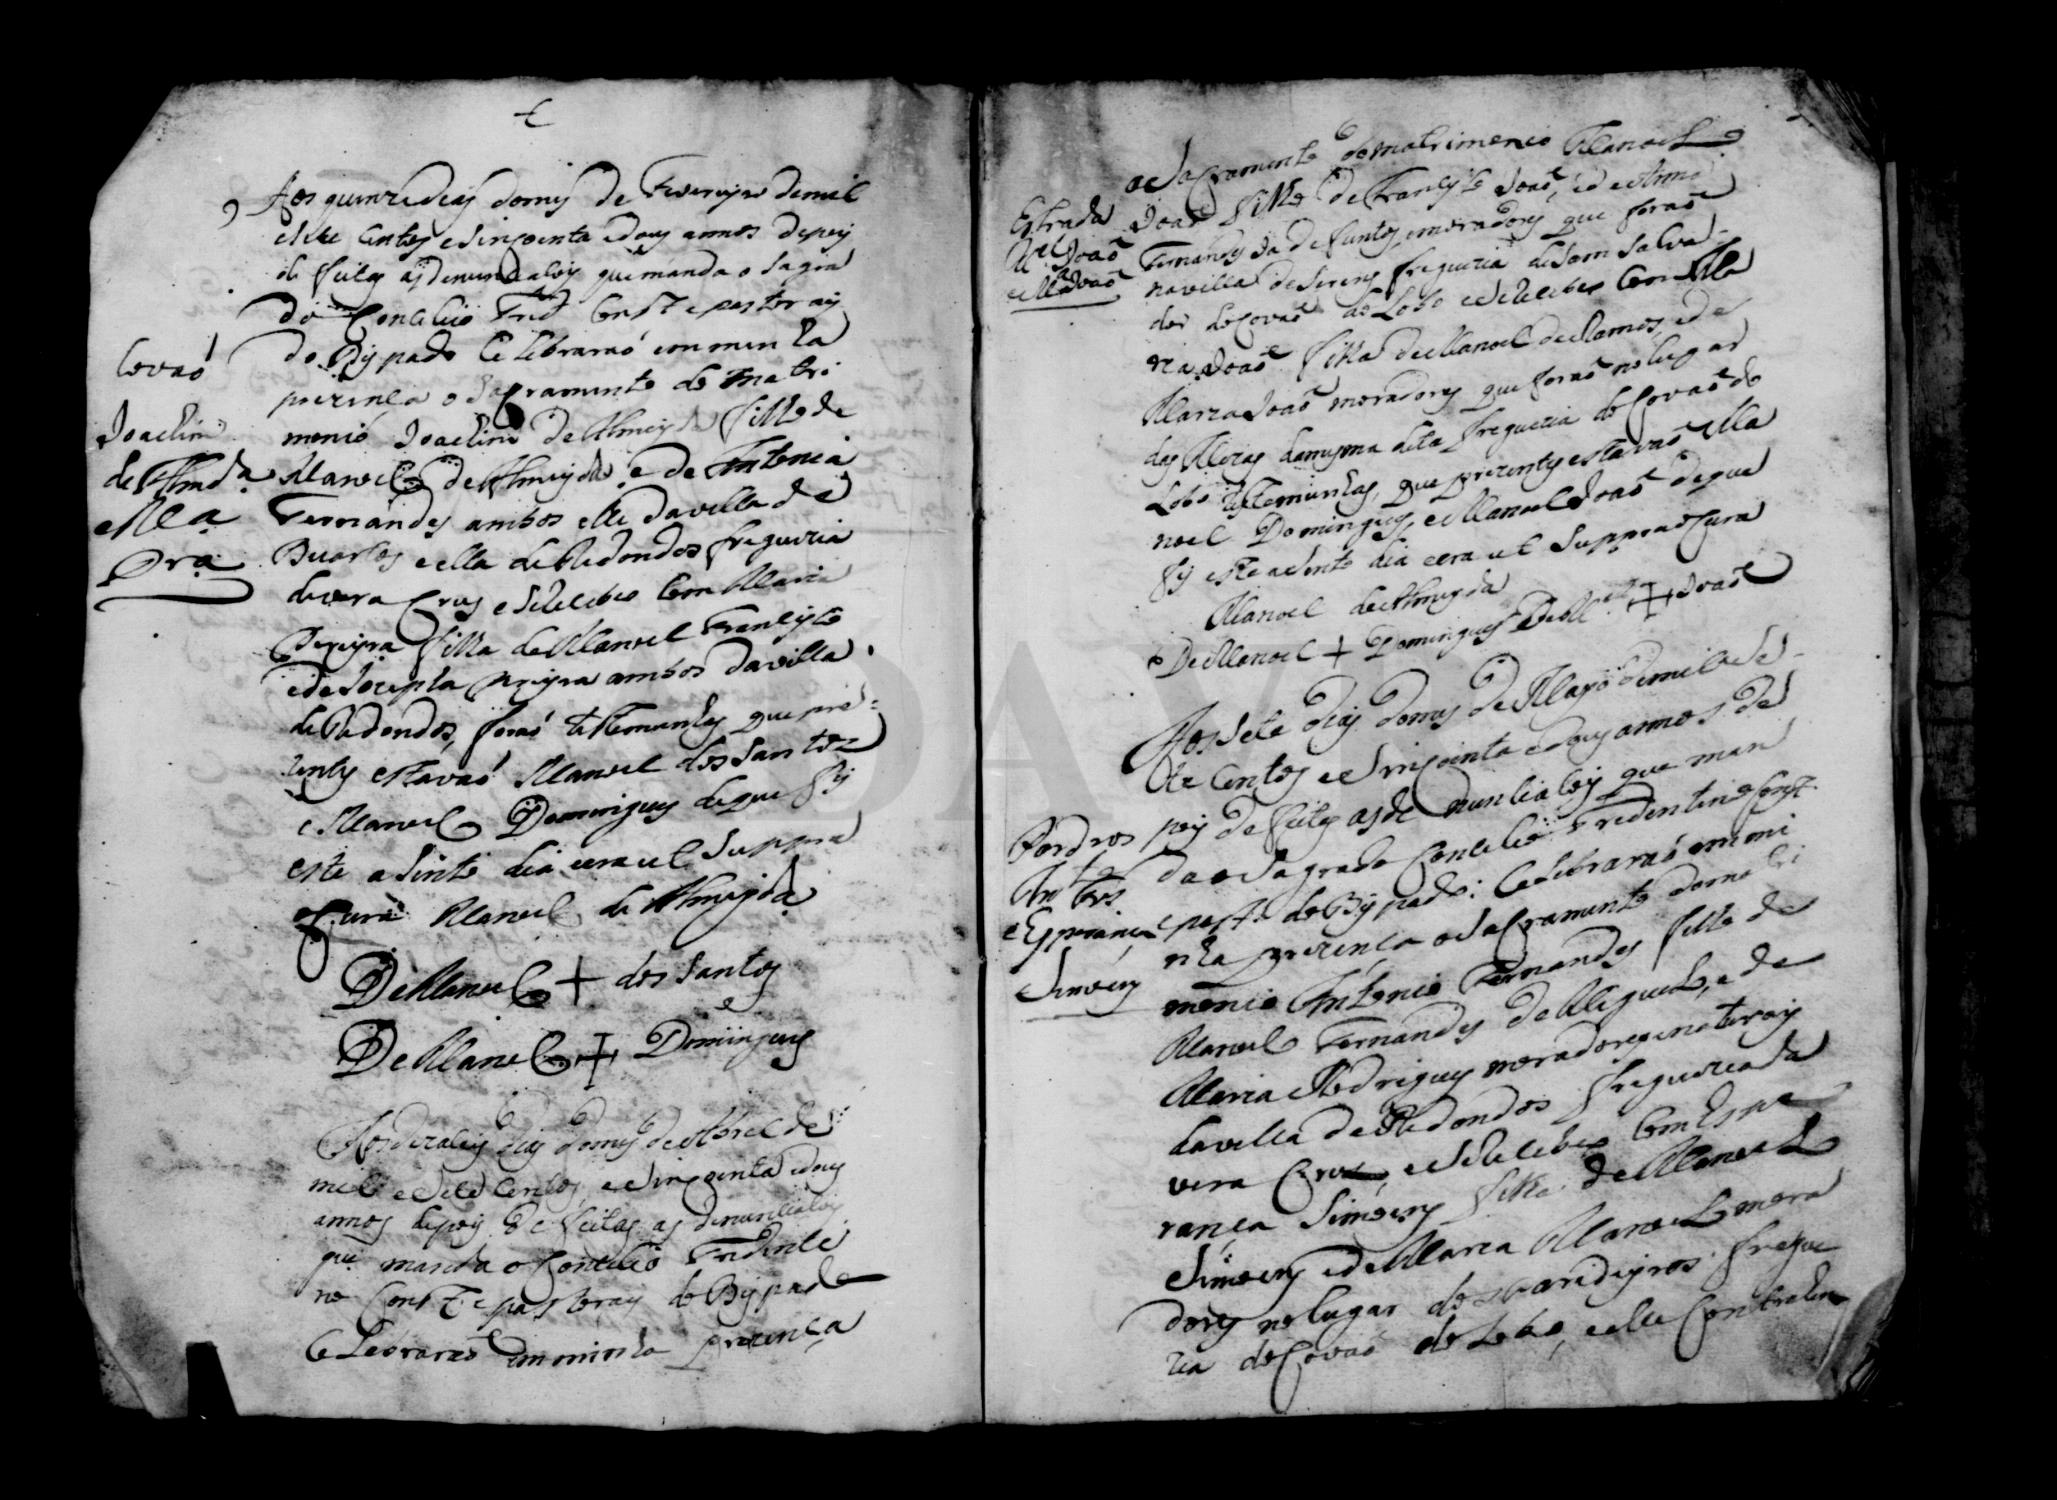 Aos quinze dias do mes de Fevereyro de mil
e sete centos e sincoenta e dous annos depois
de feitas as denunciaçois que manda o Sagra
do Concilio Trid. Const. e pastorais
do Bispado Celebraraó em minha
prezença o Sacramento do Matri
monio Joachim de Almeyda filho de
Manoel de Almeyda e de Antonia
Fernandes ambos elle da villa de
Buarcos e ella de Redondos freguezia
de vera Crus e Se recebeo com Maria
Pereyra filha de Manoel Francisco
e de Josepha Pereyra ambos da villa
de Redondos, foraó testemunhas que pre-
zentes estavaó Manoel dos Santos
e Manoel Domingues de que fis
este asento dia e era ut Suppra
o Cura Manoel de Almeyda
De Manoel + dos Santos
De Manoel + Domingues
Covaó
Joachim
de Almda
e Ma
Pra
Aos dezaseis dias do mes de Abril de
mil e Sete Centos, e Sincoenta e dous
annos depois de feitas as denunciaçois
que manda o Concilio Tridenti
no Const. e pastorais do Bispado
Celebraraó em minha prezença
o Sacramento do matrimonio Manoel
Joaó filho de Francisco Joaó, e de Anna
Fernandes Ja defuntos, moradores que foraó
na villa de freguezia de Sam Salva-
dor do Covaó do Lobo e Se recebeo Com Ma
ria Joaó filha de Manoel de Ramos, e de
Maria Joaó moradores que foraó no lugar
das da mesma dita freguezia do Covaó do
Lobo testemunhas, que prezentes estavaó Ma
noel Domingues, e Manoel Joaó de que
fis este asento dia e era ut Suppra o Cura
Manoel de Almeyda
De Manoel + Domingues De Mel + Joaó
Estrada
Mel Joaó
e Ma Joaó
Aos Sete dias do mes de Mayo de mil e Se-
te Centos e Sincoenta e dous annos de
pois de feitas as denunciaçois que man
da o Sagrado Concilio Tridentino Const.
e past. do Bispado: Celebraraó em mi
nha prezença o Sacramento do matri
monio Antonio Fernandes filho de
Manoel Fernandes de Miguel, e de
Maria Rodrigues moradores
da villa de Redondos freguezia da
vera Crus, e Se recebeo Com Espe
rança Simoens filha de Manoel
Simoens e de Maria Manoel mora
dores no lugar dos freigue
zia do Covaó do Lobo, e elle
Antes
e Esperança
Simoens